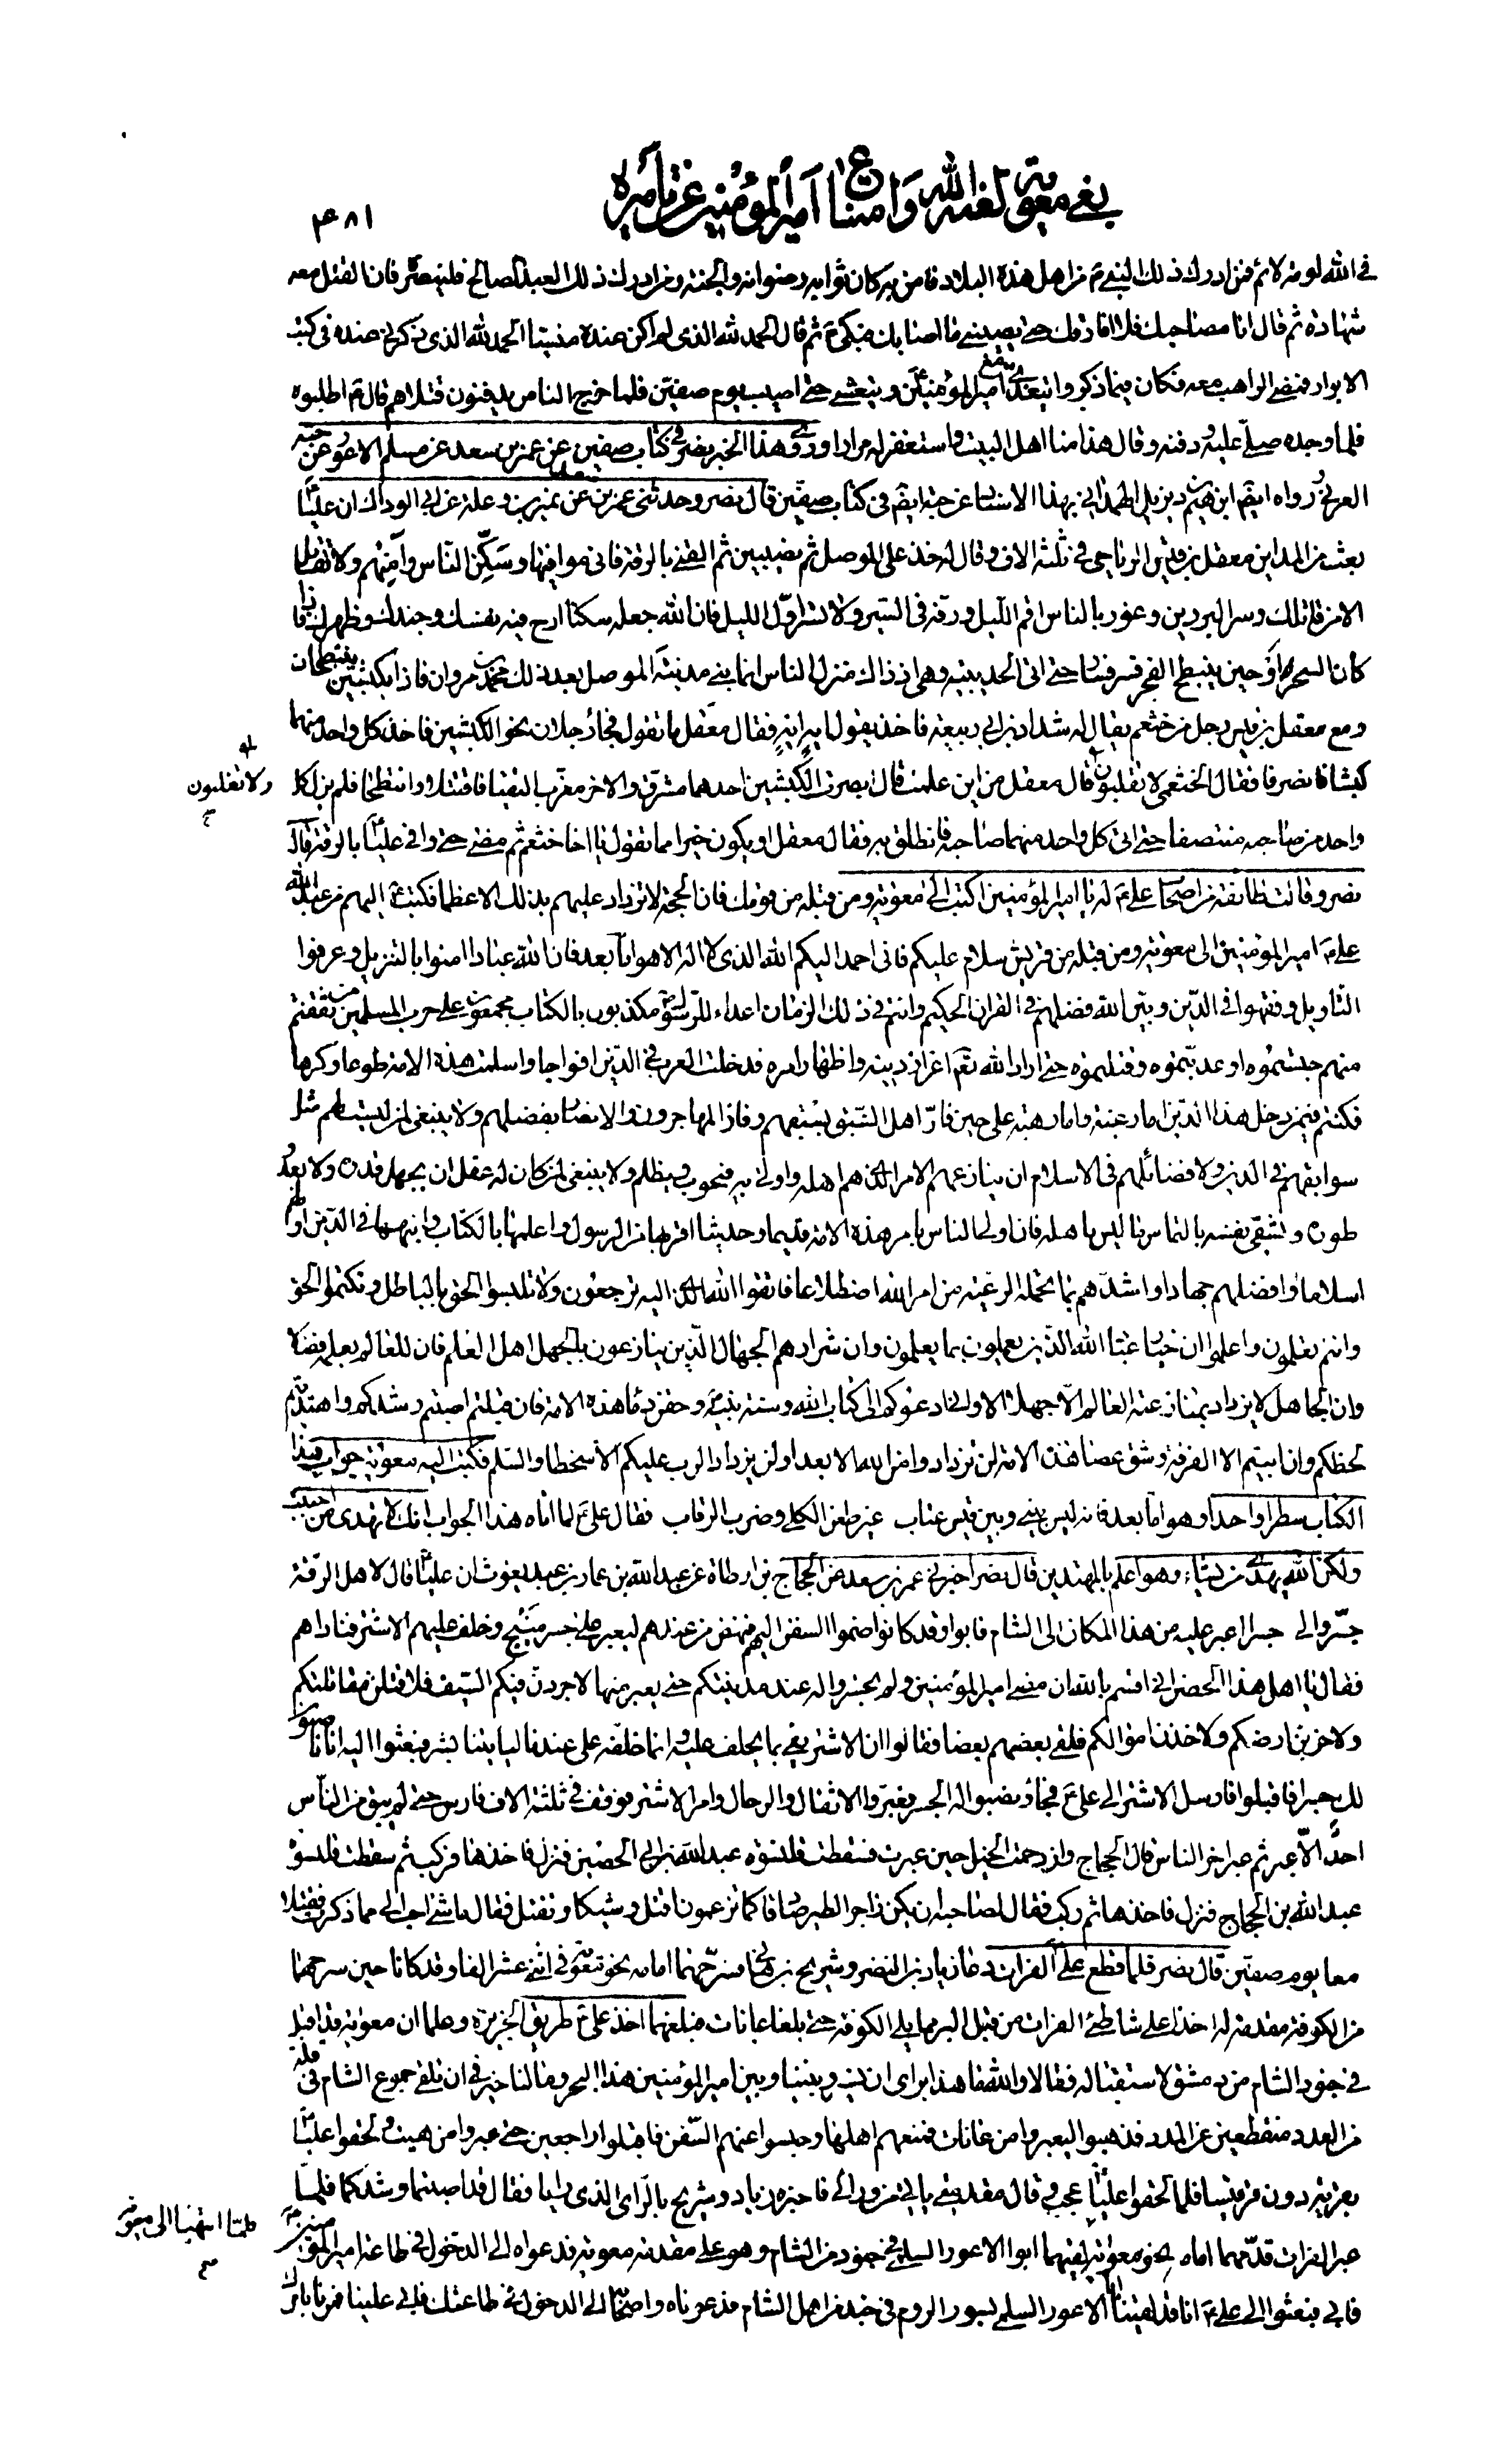 بغي معوية لعنه الله وامتناع امير المؤمنين عن تأميره
۴۸۱
في الله لومة لائم فمن ادرك ذلك النبي ص من اهل هذه البلاد فامن به كان ثوابه رضواني والجنة ومن ادرك ذلك العبد الصالح فلينصره فان القتل معه
شهادة ثم قال انا مصاحبك فلا افارقك حتى يصيبني ما اصابك فبكى ع ثم قال الحمد لله الذي لم اكن عنده منسيا الحمد لله الذي ذكرني عنده في كتب
الابرار فمضى الراهب معه فكان فيما ذكروا يتغدى مع امير المؤمنين ويتعشى حتى اصيب يوم صفين فلما خرج الناس يدفنون قتلاهم قال ع اطلبوه
فلما وجده صلى عليه ودفنه وقال هذا منا اهل البيت واستغفر له مرارا وروى هذا الخبر نصر في كتاب صفين عن عمر بن سعد عن مسلم الاعور عن حبة
العرني ورواه ايضا ابرهيم بن ديزيل الهمداني بهذا الاسناد عن حبة ايضا في كتاب صفين قال نصر وحدثني عمر بن سعد عن نمير بن وعلة عن ابي الوداك ان عليا
بعث من المداين معقل بن قيس الرياحي في ثلثة الاف وقال له خذ على الموصل ثم نصيبين ثم القني بالرقة فاني موافيها وسكن الناس وامنهم ولا تقاتل
الا من قاتلك وسر البردين وغور بالناس اقم الليل ورفه في السير ولا تسر اول الليل فان الله جعله سكنا ارح فيه نفسك وجندك وظهرك فاذا
كان السحر او حين ينبطح الفجر فسر فسار حتى اتى الحديثة وهي اذ ذاك منزل الناس انما بنى مدينة الموصل بعد ذلك محمد بن مروان فاذا بكبشين ينتطحان
ومع معقل بن قيس رجل من خثعم يقال له شداد بن ابي ربيعة فاخذ يقول ايه ايه فقال معقل ما تقول فجاء رجلان نحو الكبشين فاخذ كل واحد منهما
كبشا فانصرفا فقال الخثعمي لا تغلبون قال معقل من اين علمت قال ابصرت الكبشين احدهما مشرق والاخر مغرب التقيا فاقتتلا وانتطحا فلم يزل كل
ولا تغلبون
واحد من صاحبه منتصفا حتى اتى كل واحد منهما صاحبه فانطلق به فقال معقل او يكون خيرا مما تقول يا اخا خثعم ثم مضى حتى وافى عليا بالرقة قال
نصر وقالت طائفة من اصحاب علي ع له يا امير المؤمنين اكتب الى معوية ومن قبله من قومك فان الحجة لا تزداد عليهم بذلك الا عظما فكتب ع اليهم من عبد الله
علي ع امير المؤمنين الى معوية ومن قبله من قريش سلام عليكم فاني احمد اليكم الله الذي لا اله الا هو اما بعد فان لله عبادا امنوا بالتنزيل وعرفوا
التاويل وفقهوا في الدين وبين الله فضلهم في القران الحكيم وانتم في ذلك الزمان اعداء للرسول ص مكذبون بالكتاب مجمعون على حرب المسلمين من ثقفتم
منهم حبستموه او عذبتموه وقتلتموه حتى اراد الله تع اعزاز دينه واظهار امره فدخلت العرب في الدين افواجا واسلمت هذه الامة طوعا وكرها
فكنتم فيمن دخل هذا الدين اما رغبة واما رهبة على حين فاز اهل السبق بسبقهم وفاز المهاجرون والانصار بفضلهم ولا ينبغي لمن ليست لهم مثل
سوابقهم في الدين ولا فضائلهم في الاسلام ان ينازعهم الامر الذي هم اهله واولى به فيحوب ويظلم ولا ينبغي لمن كان له عقل ان يجهل قدره ولا يعدو
طوره ويشقي نفسه بالتماس ما ليس باهله فان اولى الناس بامر هذه الامة قديما وحديثا اقربها من الرسول واعلمها بالكتاب وافقهها في الدين اولهم
اسلاما وافضلهم جهادا واشدهم بما تحمله الرعية من امر الله اضطلاعا فاتقوا الله الذي اليه ترجعون ولا تلبسوا الحق بالباطل وتكتموا الحق
وانتم تعلمون واعلموا ان خيار عباد الله الذين يعملون بما يعلمون وان شرارهم الجهال الذين ينازعون بالجهل اهل العلم فان للعالم بعلمه فضلا
وان الجاهل لا يزداد بمنازعة العالم الا جهلا الا واني ادعوكم الى كتاب الله وسنة نبيه وحقن دماء هذه الامة فان قبلتم اصبتم رشدكم واهتديتم
لحظكم وان ابيتم الا الفرقة وشق عصا هذه الامة لن تزداد وامن الله الا بعدا ولن يزداد الرب عليكم الا سخطا والسلم فكتب اليه معوية جواب هذا
الكتاب سطرا واحدا وهو اما بعد فانه ليس بيني وبين قيس عتاب غير طعن الكلى وضرب الرقاب فقال علي ع لما اتاه هذا الجواب انك لا تهدي من احببت
ولكن الله يهدي من يشاء وهو اعلم بالمهتدين قال نصر اخبرني عمر بن سعد عن الحجاج بن ارطاة عن عبد الله بن عمار بن عبد يغوث ان عليا قال لاهل الرقة
جسروا لي جسرا اعبر عليه من هذا المكان الى الشام فابوا وقد كانوا ضموا السفن اليهم فنهض من عندهم ليعبر على جسر منبج وخلف عليهم الاشتر فناداهم
فقال يا اهل هذا الحصن اني اقسم بالله ان مضى امير المؤمنين ولم تجسروا له عند مدينتكم حتى يعبر منها لاجردن فيكم السيف فلاقتلن مقاتلتكم
ولاخربن ارضكم ولاخذن اموالكم فلقي بعضهم بعضا فقالوا ان الاشتر يفي بما يحلف عليه وانما خلفه علي عندنا لياتينا بشر فبعثوا اليه انا ناصبون
لكم جسرا فاقبلوا فارسل الاشتر الى علي ع فجاء ونصبوا له الجسر فعبر والاثقال والرجال وامر الاشتر فوقف في ثلثة الاف فارس حتى لم يبق من الناس
احد الا عبر ثم عبر اخر الناس قال الحجاج وازدحمت الخيل حين عبرت فسقطت قلنسوة عبد الله بن ابي الحصين فنزل فاخذها وركب ثم سقطت قلنسوة
عبد الله بن الحجاج فنزل فاخذها ثم ركب فقال لصاحبه ان يكن زاجر الطير صادقا كما تزعمون اقتل وشيكا وتقتل فقال ما شئ احب الي مما ذكرت فقتلا
معا يوم صفين قال نصر فلما قطع علي الفرات دعا زياد بن النضر وشريح بن هاني فسرحهما امامه نحو معوية في اثني عشر الفا وقد كانا حين سرحهما
من الكوفة مقدمة له اخذا على شاطئ الفرات من قبل البر مما يلي الكوفة حتى بلغا عانات فبلغهما اخذ علي ع طريق الجزيرة وعلما ان معوية قد اقبل
في جنود الشام من دمشق لاستقباله فقالا والله ما هذا براي ان نسير وبيننا وبين امير المؤمنين هذا البحر وما لنا خير في ان نلقى جموع الشام في قلة
من العدد منقطعين عن المدد فذهبوا ليعبروا من عانات فمنعهم اهلها وحبسوا عنهم السفن فاقبلوا راجعين حتى عبروا من هيت ولحقوا عليا
بقرية دون قرقيسا فلما لحقوا عليا عجب وقال مقدمتي ياتي من ورائي فاخبره زياد وشريح بالراي الذي رايا فقال قد اصبتما رشدكما فلما
عبر الفرات قدمهما امامه نحو معوية لقيهما ابو الاعور السلمي في جنود من الشام وهو على مقدمة معوية فدعواه الى الدخول في طاعة امير المؤمنين
فلما انتهيا الى معوية
فابى فبعثوا الى علي ع انا قد لقينا ابا الاعور السلمي بسور الروم في جند من اهل الشام فدعوناه واصحابه الى الدخول في طاعتك فابى علينا فمرنا بامرك